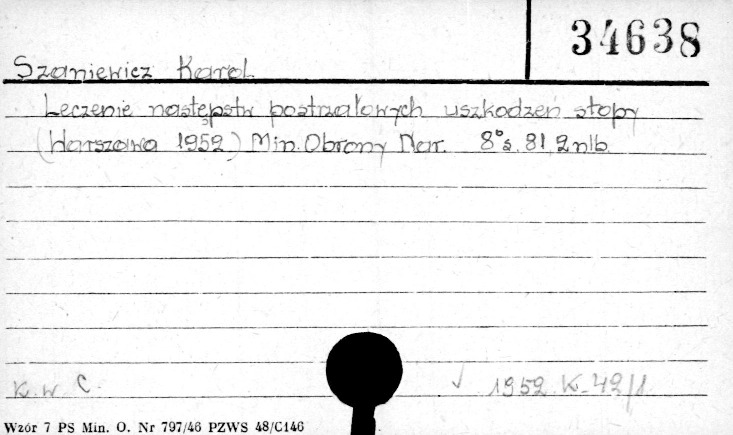 34638
Szaniewicz Karol
Leczenie następstw postrzałowych uszkodzeń stopy
(Warszawa 1952) Min. Obrony Nar. 8° s. 81, 2 nlb.
K. w C. √ 1952 K-42/1
Wzór 7 PS Min. O. Nr 797/46 PZWS 48/C146